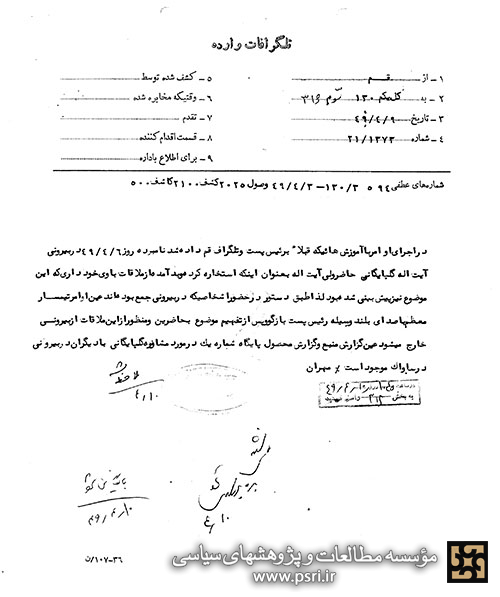 تلگرافات وارده
۱ – از قم
۲ – به کل یکم ۱۳۰ سوم ۳۱۶
۳ – تاریخ ۴۹/۴/۹
۴ – شماره ۲۱/۱۳۷۳
۵ – کشف شده توسط
۶ – وقتیکه مخابره شده
۷ – تقدم
۸ – قسمت اقدام کننده
۹ – برای اطلاع باداره
شماره‌های عطفی ۵۹۴ ۱۳۰/۳ – ۴۹/۴/۳ وصول ۲۰۲۵ کشف ۲۱۰۰ کاشف ۵۰۰
در اجرای اوامر با آموزش هائیکه قبلا برئیس پست و تلگراف قم داده شد نامبرده روز ۴۹/۴/۶ در بیرونی
آیت اله گلپایگانی حاضر ولی آیت اله بعنوان اینکه استخاره کرده و بد آمده از ملاقات با وی خودداری که این
موضوع نیز پیش بینی شده بود لذا طبق دستور در حضور اشخاصیکه در بیرونی جمع بوده‌اند عین اوامر تیمسار
معظم با صدای بلند وسیله رئیس پست بازگو و پس از تفهیم موضوع به حاضرین و منظور از این ملاقات از بیرونی
خارج میشود عین گزارش منبع و گزارش محصول پایگاه شماره یک در مورد مشاوره گلپایگانی با دیگران در بیرونی
در ساواک موجود است . مهران
ملاحظه شد
۴/۱۰
به بخش ۳۱۲
۴/۱۰
بایگانی شود
۴۹/۴/۱۰
۳۶–۱۰۷/ن
مؤسسه مطالعات و پژوهشهای سیاسی
www.psri.ir